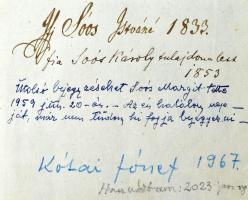 Ifj Soós Istváné 1833.
Fia Soós Károly tulajdona lett
1853
Utolsó bejegyzéseket Soós Margit tette
1959 jún. 20-án. - Az én halálom nap-
ját, már nem tudom ki fogja bejegyezni -
Kótai József 1967.
2023